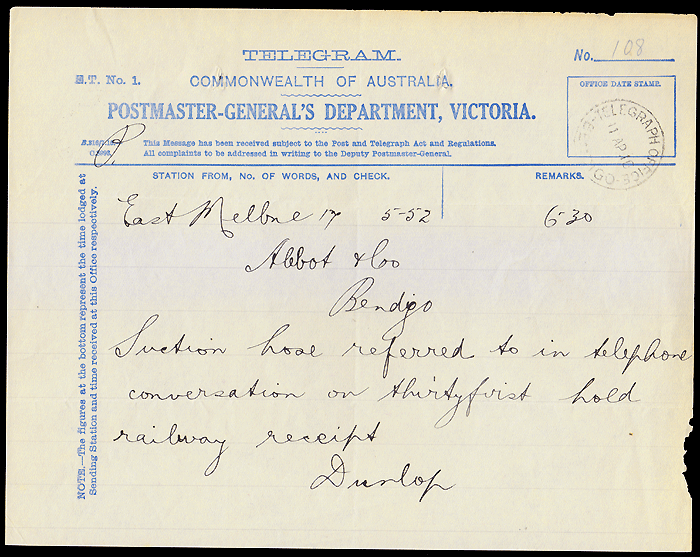 TELEGRAM.
No. 108
E.T. No. 1.
COMMONWEALTH OF AUSTRALIA.
OFFICE DATE STAMP.
POSTMASTER-GENERAL'S DEPARTMENT, VICTORIA.
TELEGRAPH OFFICE
11 AP
P.
This Message has been received subject to the Post and Telegraph Act and Regulations.
All complaints to be addressed in writing to the Deputy Postmaster-General.
STATION FROM, No. OF WORDS, AND CHECK.
REMARKS.
East Melbne 17 5-52 6-30
Abbot & Coo
Bendigo
Suction hose referred to in telephone
conversation on thirtyfirst hold
railway receipt
Dunlop
NOTE.—The figures at the bottom represent the time lodged at
Sending Station and time received at this Office respectively.